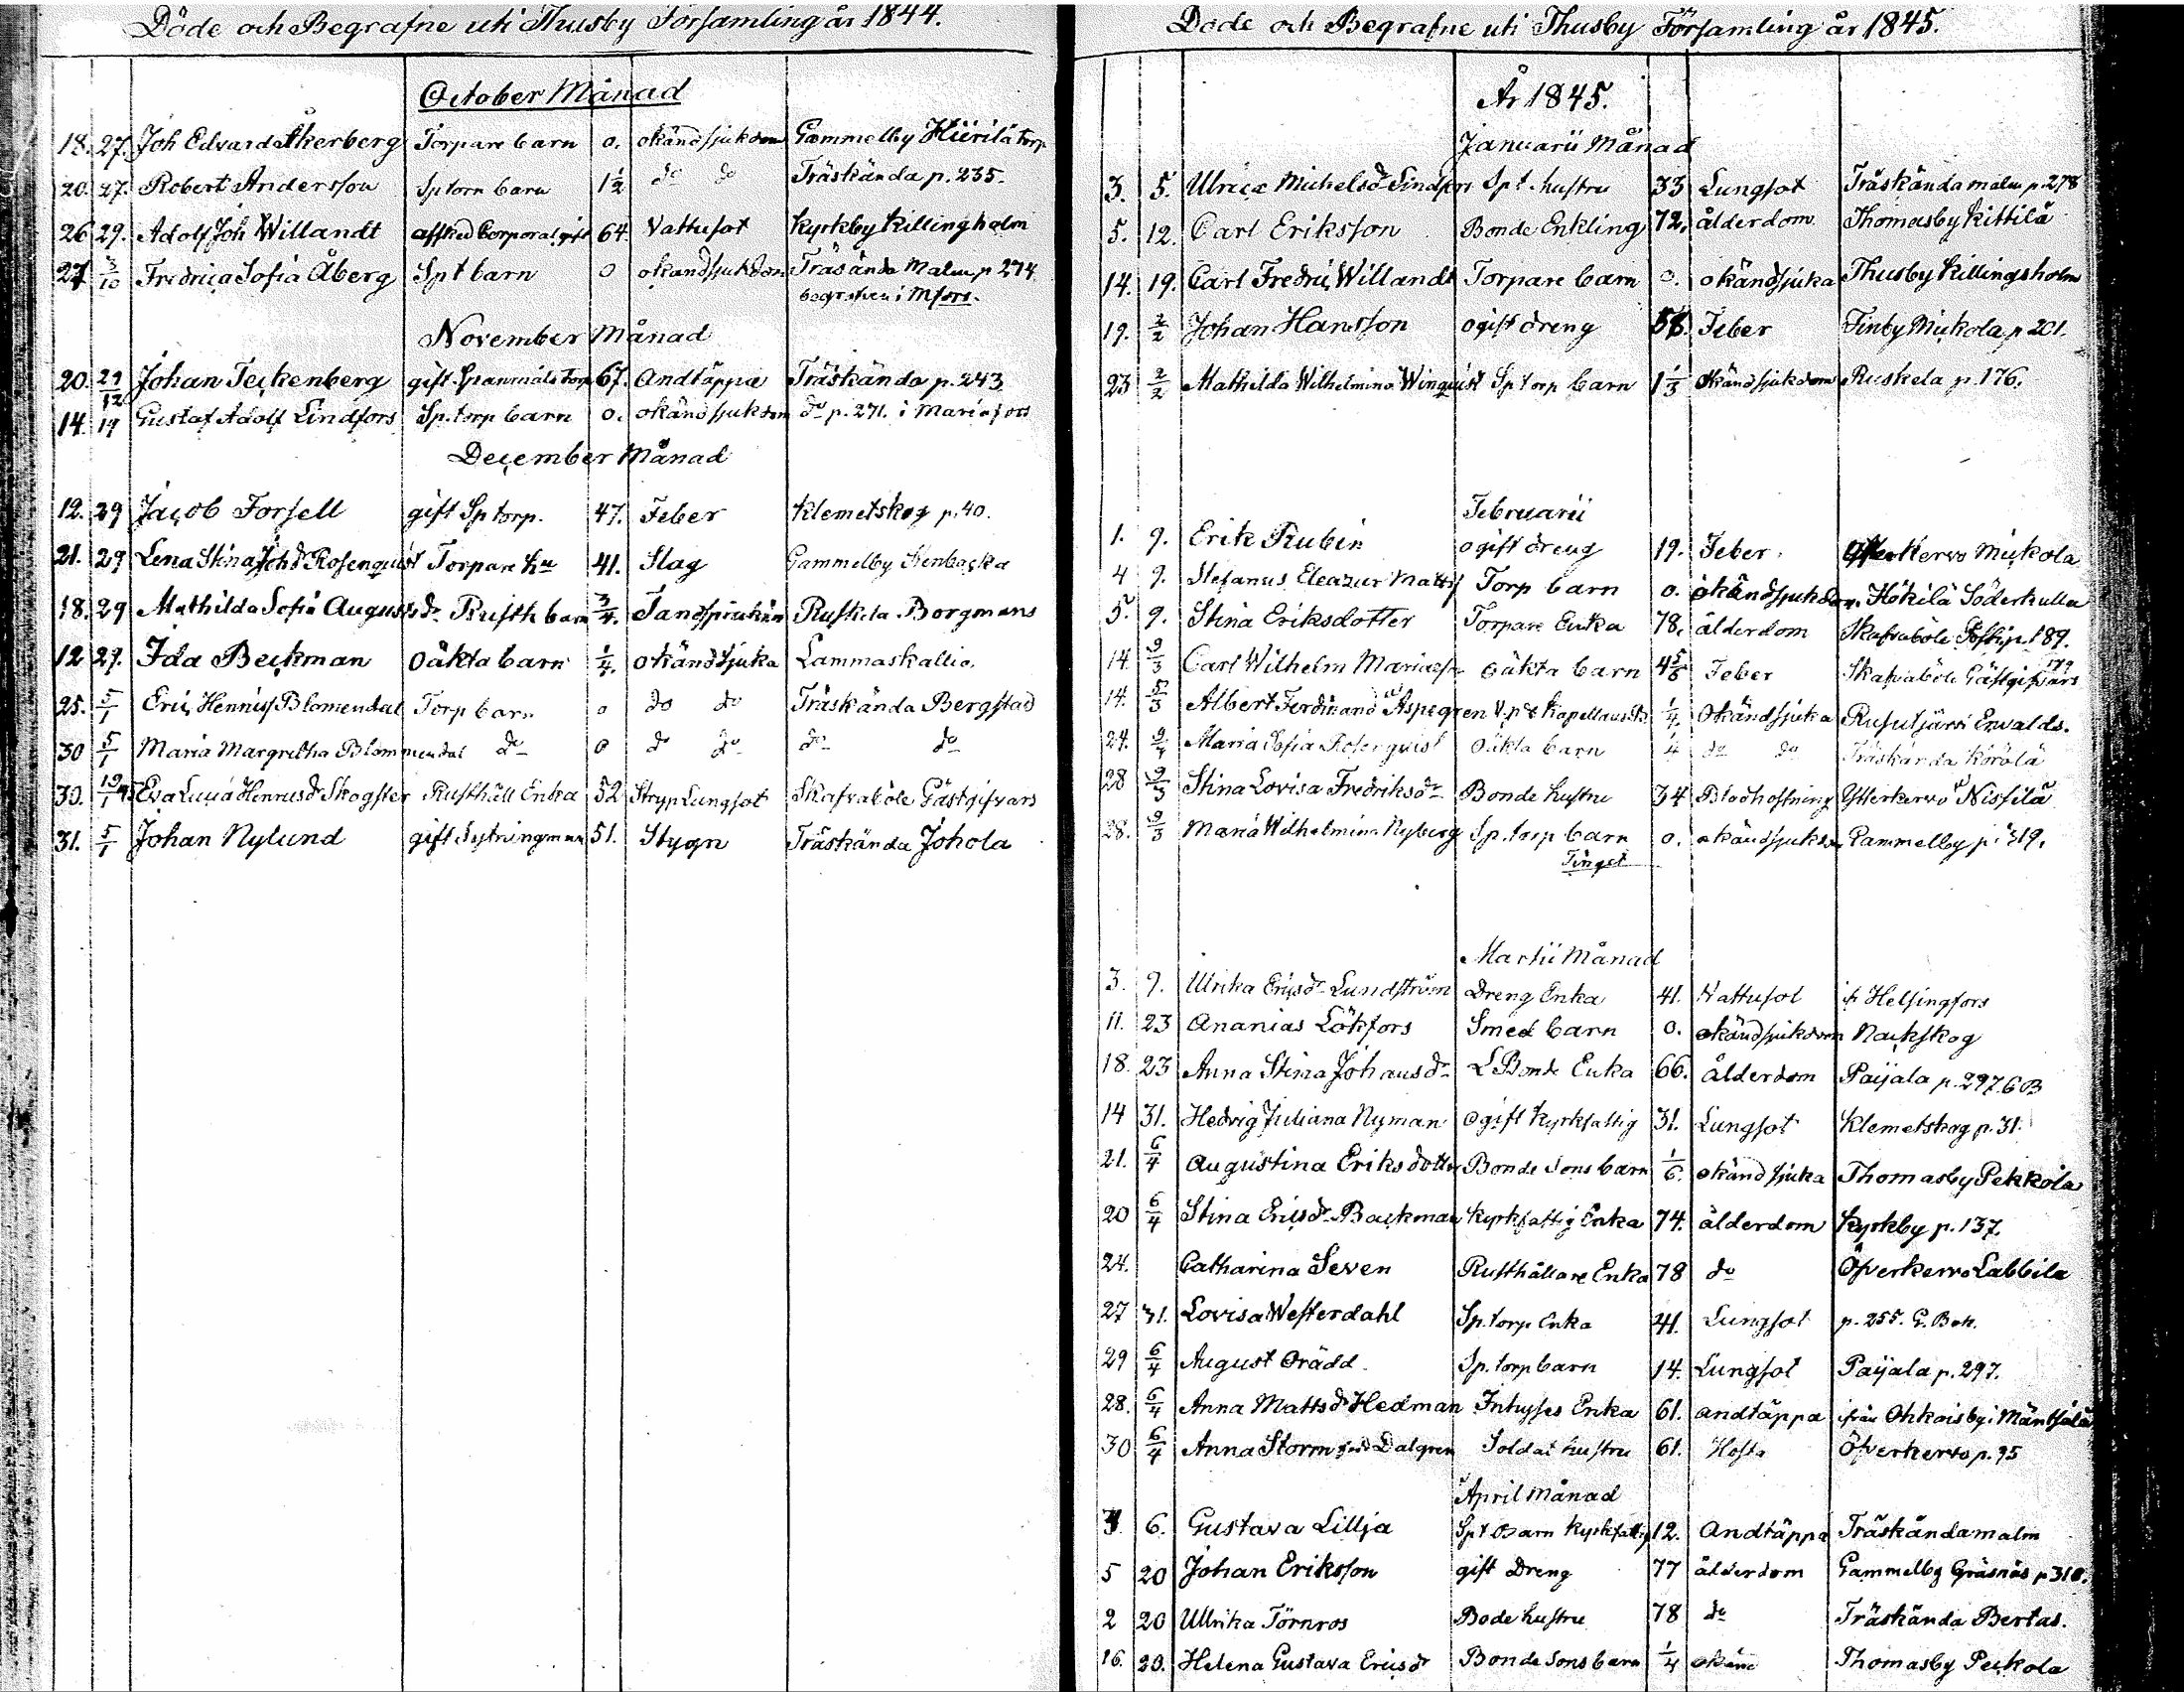 Döde och Begrafne uti Thusby Församling år 1844.
October Månad
18. 27. Joh Edvard Åkerberg Torpare barn 0. okänd sjukdom Gammelby Hiirilä torp
20. 27. Robert Andersson Sp torp barn 1½ do do Träskända p. 235.
26 29. Adolf Joh Willandt afsked Corporal gift 64. Vattusot Kyrkby Killingholm
27 3/10 Fredrica Sofia Åberg Spt barn 0 okänd sjukdom Träsända Malm p 274.
begrafven i Mfors.
November Månad
20. Johan Teckenberg gift 67. Andtäppa Träskända p. 243
14. 19 Gustaf Adolf Lindfors Sp. torp barn 0. okänd sjukdom do p. 271. i Mariafors
December Månad
12. 29 Jacob Forsell gift Sp torp. 47. Feber Klemetskog p. 40.
21. 29 Lena Stina Johd Rosenquist Torpare hu 41. Slag Gammelby Stenbacka
18. 29 Mathilda Sofia Augustsdr Rusth barn 3/4. Tandsprickn Ruskela Borgmans
12 29. Ida Beckman oäkta barn 1/4. okänd sjuka Lammaskallio.
25. 5/1 Eric Henriss Blomendal Torp barn 0 do do Träskända Bergstad
30 5/1 Maria Margretha Blommendal do 0 do do do do
30. Eva Lucia Henricsd Skogster Rusthåll Enka 52 Stryp Lungsot Skafvaböle Gästgifvars
31. 5/1 Johan Nylund gift 51. Stygn Träskända Johola
Döde och Begrafne uti Thusby Församling år 1845.
År 1845.
Januarii Månad
3. 5. Ulrica Michelsdr Lindfors Spt. hustru 33 Lungsot Träskända malm p. 278
5. 12. Carl Eriksson Bonde Enkling 72. ålderdom Thomasby Kittilä
14. 19. Carl Fredric Willandt Torpare barn 0. okänd sjuka Thusby Killingsholm
19. 2/2 Johan Hansson ogift dreng 58. Feber Finby Mickola p 201.
23 2/2 Mathilda Wilhelmina Winquist Sp torp barn 1 1/3 okänd sjukdom Ruskela p. 176.
Februarii
1. 9. Erik Rubin ogift dreng 19. Feber Kervo Mickola
4 9. Stefanus Eleazur Mattss Torp barn 0. okänd sjukdom Hökilä Söderkulla
5. 9. Stina Eriksdotter Torpare Enka 78. ålderdom Skafvaböle p. 189.
14. 9/3 Carl Wilhelm Mariass oäkta barn 4 5/6 Feber Skafvaböle Gästgifvars 179
14. 5/3 Albert Ferdinand Aspegren V.p & Kapellans B. 1/4. Okänd sjuka Rusutjärvi Ervalds.
24. Maria Sofia Rosenqvist oäkta barn 1/4 do do Träskända Körölä
28 9/3 Stina Lovisa Fredriksdr Bonde hustru 34 Blodhostning Ytterkervo Nissilä
28. 9/3 Maria Wilhelmina Nyberg Sp. torp barn 0. okänd sjukdom Gammelby p. 319.
Tinget
Martii Månad
3. 9. Ulrika Ericsdr Lundström Dreng Enka 41. Vattusot i Helsingfors
11. 23 Ananias Lökfors Smed barn 0. okänd sjukdom Nackskog
18. 23 Anna Stina Johansdr L Bonde Enka 66. ålderdom Paijala p. 297. G B
14 31. Hedvig Juliana Nyman ogift kyrkfattig 31. Lungsot Klemetskog p. 31.
21. 6/4 Augustina Eriksdotter Bonde sons barn 1/6. okänd sjuka Thomasby Pekkola
20 6/4 Stina Ericsdr Backman kyrkfattig Enka 74. ålderdom Kyrkby p. 137.
24. Catharina Seven Rusthållare Enka 78 do Öfverkervo Labbila
27 31. Lovisa Westerdahl Sp. torp Enka 41. Lungsot p. 255. G. Bok.
29 6/4 August Orädd Sp. torp barn 14. Lungsot Paijala p. 297.
28. 6/4 Anna Mattsdr Hedman Inhyses Enka 61. andtäppa ifrån Ohkoisby i Mäntsälä
30 6/4 Anna Storm född Dalgren Soldat hustru 61. Hosta Öfverkervo p. 95
April Månad
6. Gustava Lillja Spt Barn kyrkfattig 12. Andtäppa Träskända malm
5 20 Johan Eriksson gift Dreng 77 ålderdom Gammelby Gräsnäs p 310.
2 20 Ullrika Törnros Bode hustru 78 do Träskända Bertas.
16. 20. Helena Gustava Ericsdr Bonde sons barn 1/4 okänd Thomasby Peckola